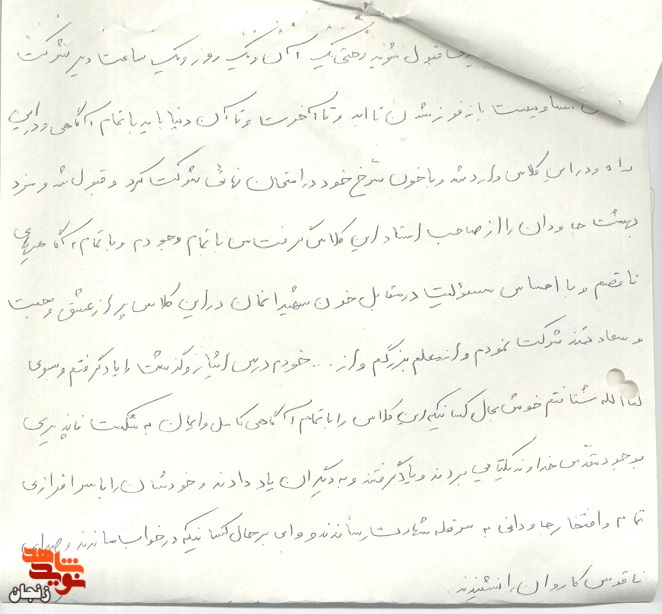 قبول شوید و حتی یک آن و یک روز و یک ساعت دیر شرکت
مساویست با نفوز شدن تا ابد و تا آخرت و تا آن دنیا باید با تمام آگاهی و در این
راه و در این کلاس وارد شد و با خون سرخ خود در امتحان نهائی شرکت کرد و قبول شد و مزد
بهشت جاودان را از صاحب استاد این کلاس گرفت من با تمام وجودم و با تمام آگاهیهای
ناقصم و با احساس مسؤلیت در مقابل خون شهیدانمان در این کلاس پر از عشق و محبت
و سعادتمند شرکت نمودم و از معلم بزرگم و از ... خودم درس ایثار و گذشت را یاد گرفتم و بسوی
لقاالله شتافتم خوش بحال کسانیکه این کلاس را با تمام آگاهی کامل و ایمان به شکست ناپذیری
بوجود مقدس خداوند یکتا پی بردند و یاد گرفتند و به دیگران یاد دادند و خودشان را با سرافرازی
تمام و افتخار جاودانی به سر قله شهادت رساندند و وای بر حال کسانیکه در خواب ماندند و صدای
ناقوس کاروان را نشنیدند
نوید شاهد
زنجان